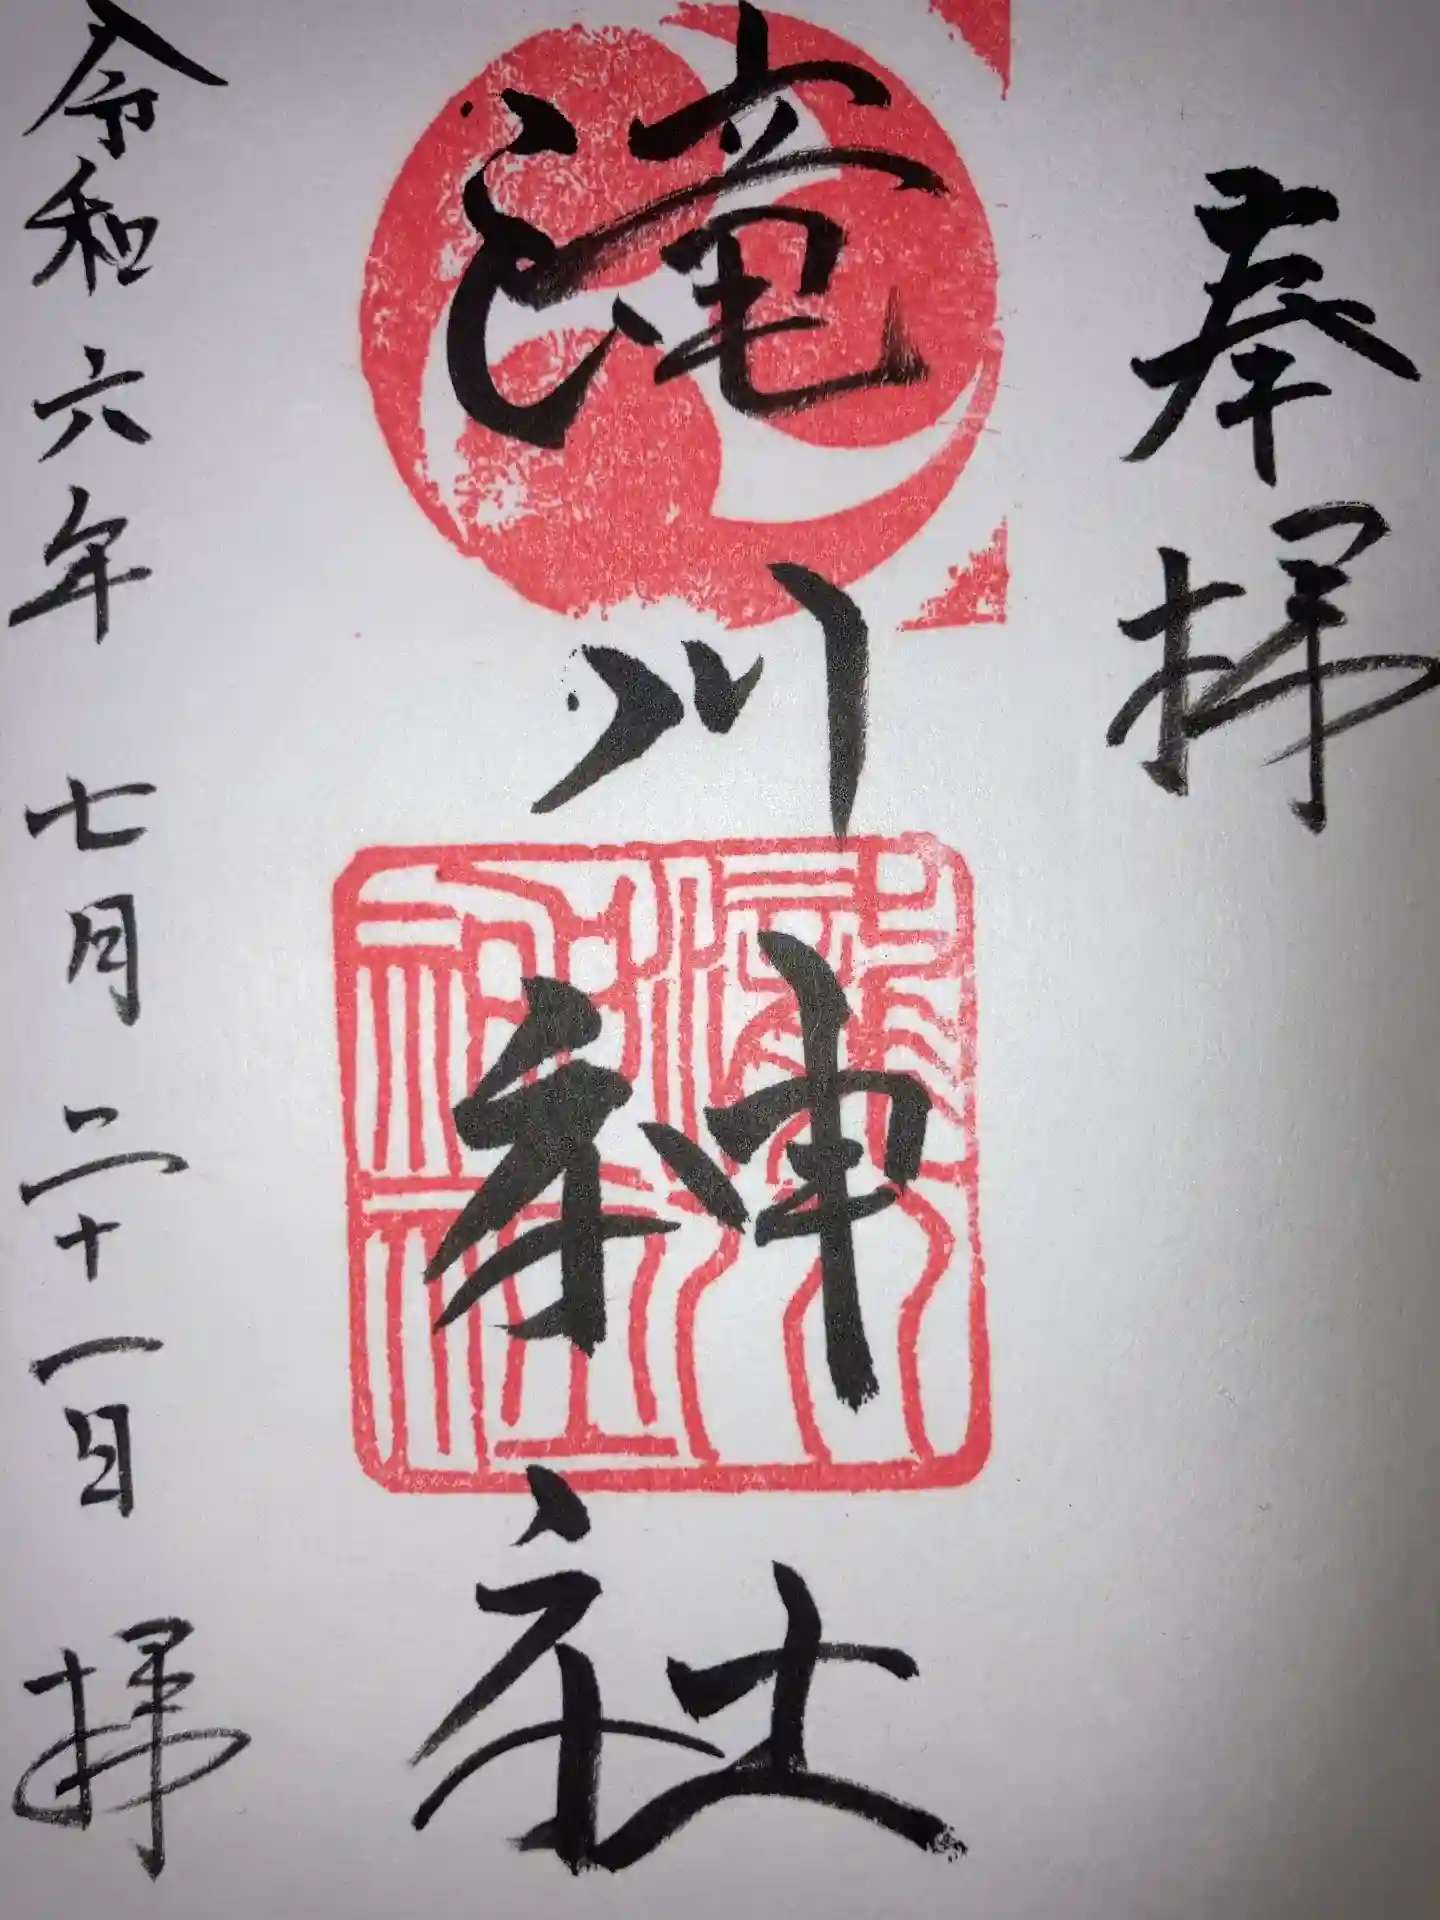 奉拝
滝川神社
瀧川神社
令和六年七月二十一日拝